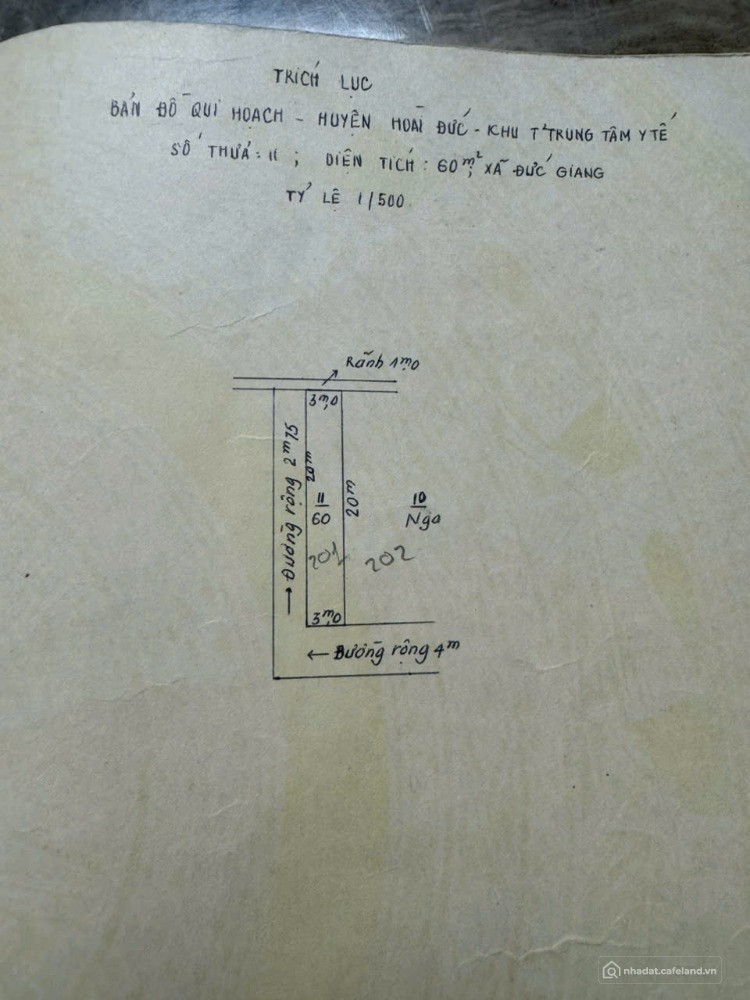 TRÍCH LỤC
BẢN ĐỒ QUI HOẠCH - HUYỆN HOÀI ĐỨC - KHU TT TRUNG TÂM Y TẾ
SỐ THỬA: 11; DIỆN TÍCH: 60m²; XÃ ĐỨC GIANG
TỶ LỆ 1/500
Rãnh 1m,0
3m,0
Đường rộng 2m75
20m
20m
11
60
10
Nga
201
202
3m,0
Đường rộng 4m
nhadat.cafeland.vn